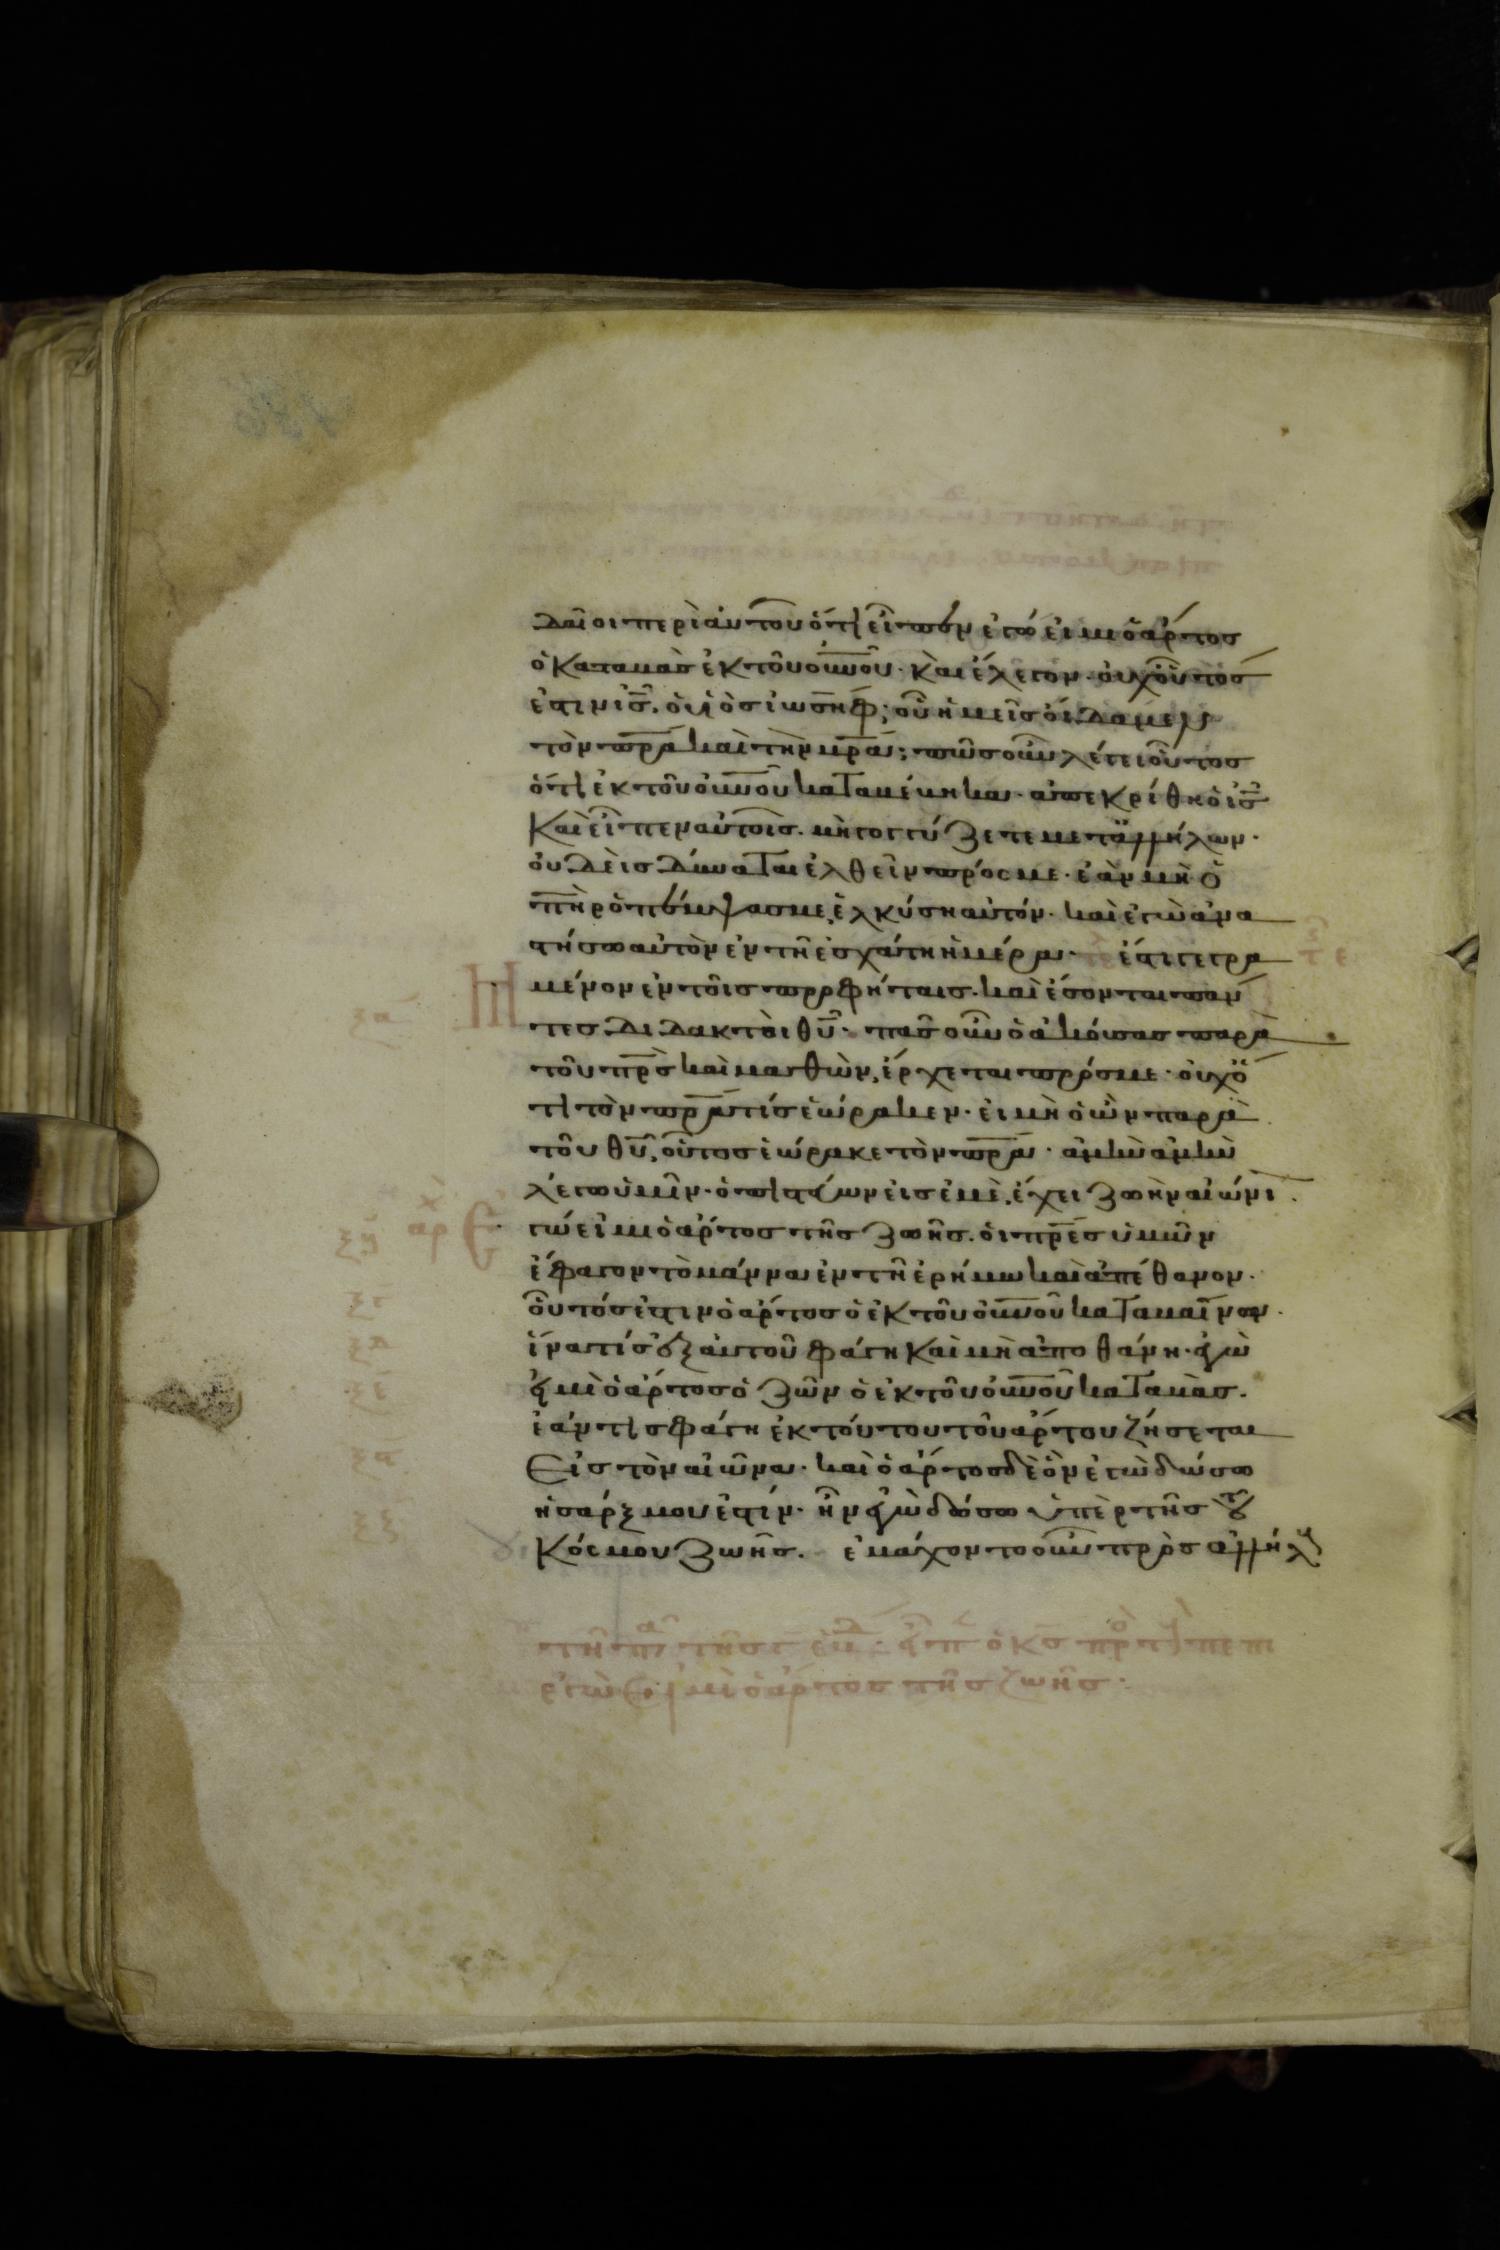 δαῖοι περὶ αὐτοῦ ὅτι εἶπεν ἐγώ εἰμι ὁ ἄρτος
ὁ καταβὰς ἐκ τοῦ οὐνοῦ· καὶ ἔλεγον· οὐχ οὗτός
ἐστιν ἰς̅ ὁ υἱὸς ἰωσήφ; οὗ ἡμεῖς οἴδαμεν
τὸν πρ̅α καὶ τὴν μρ̅α; πῶς οὖν λέγει οὗτος
ὅτι ἐκ τοῦ οὐνοῦ καταβέβηκα· ἀπεκρίθη ὁ ἰς̅
καὶ εἶπεν αὐτοῖς· μὴ γογγύζετε μετ' ἀλλήλων·
οὐδεὶς δύναται ἐλθεῖν πρός με· ἐὰν μὴ ὁ
πη̅ρ ὁ πέμψας με, ἑλκύσῃ αὐτόν· καὶ ἐγὼ ἀνα
στήσω αὐτὸν ἐν τῇ ἐσχάτῃ ἡμέρα· ἔστι γεγρα
μένον ἐν τοῖς προφήταις· καὶ ἔσονται πάν
τες διδακτοὶ θυ̅· πᾶς οὖν ὁ ἀκούσας παρὰ
τοῦ πρ̅ς καὶ μαθὼν, ἔρχεται πρός με· οὐχ ὅ
τι τὸν πρ̅α τίς ἑώρακεν· εἰ μὴ ὁ ὢν παρὰ
τοῦ θυ̅, οὗτος ἑώρακε τὸν πρ̅α· ἀμὴν ἀμὴν
λέγω ὑμῖν· ὁ πιστεύων εἰς ἐμὲ, ἔχει ζωὴν αἰώνι
ξη ἀρ̅χ Ἐγώ εἰμι ὁ ἄρτος τῆς ζωῆς· οἱ πρ̅ες ὑμῶν
ἔφαγον τὸ μάννα ἐν τῇ ἐρήμω καὶ ἀπέθανον·
οὗτός ἐστιν ὁ ἄρτος ὁ ἐκ τοῦ οὐνοῦ καταβαίνων·
ἵνα τίς ἐξ αὐτοῦ φάγῃ καὶ μὴ ἀποθάνῃ· ἐγὼ
εἰμὶ ὁ ἄρτος ὁ ζῶν ὁ ἐκ τοῦ οὐνοῦ καταβὰς·
ἐάν τις φάγῃ ἐκ τούτου τοῦ ἄρτου ζήσεται
εἰς τὸν αἰῶνα· καὶ ὁ ἄρτος δὲ ὃν ἐγὼ δώσω
ἡ σάρξ μου ἐστίν· ἣν ἐγὼ δώσω ὑπὲρ τῆς τοῦ
κόσμου ζωῆς. ἐμάχοντο οὖν πρὸς ἀλλήλ
ἐγὼ εἰμὶ ὁ ἄρτος τῆς ζωῆς·